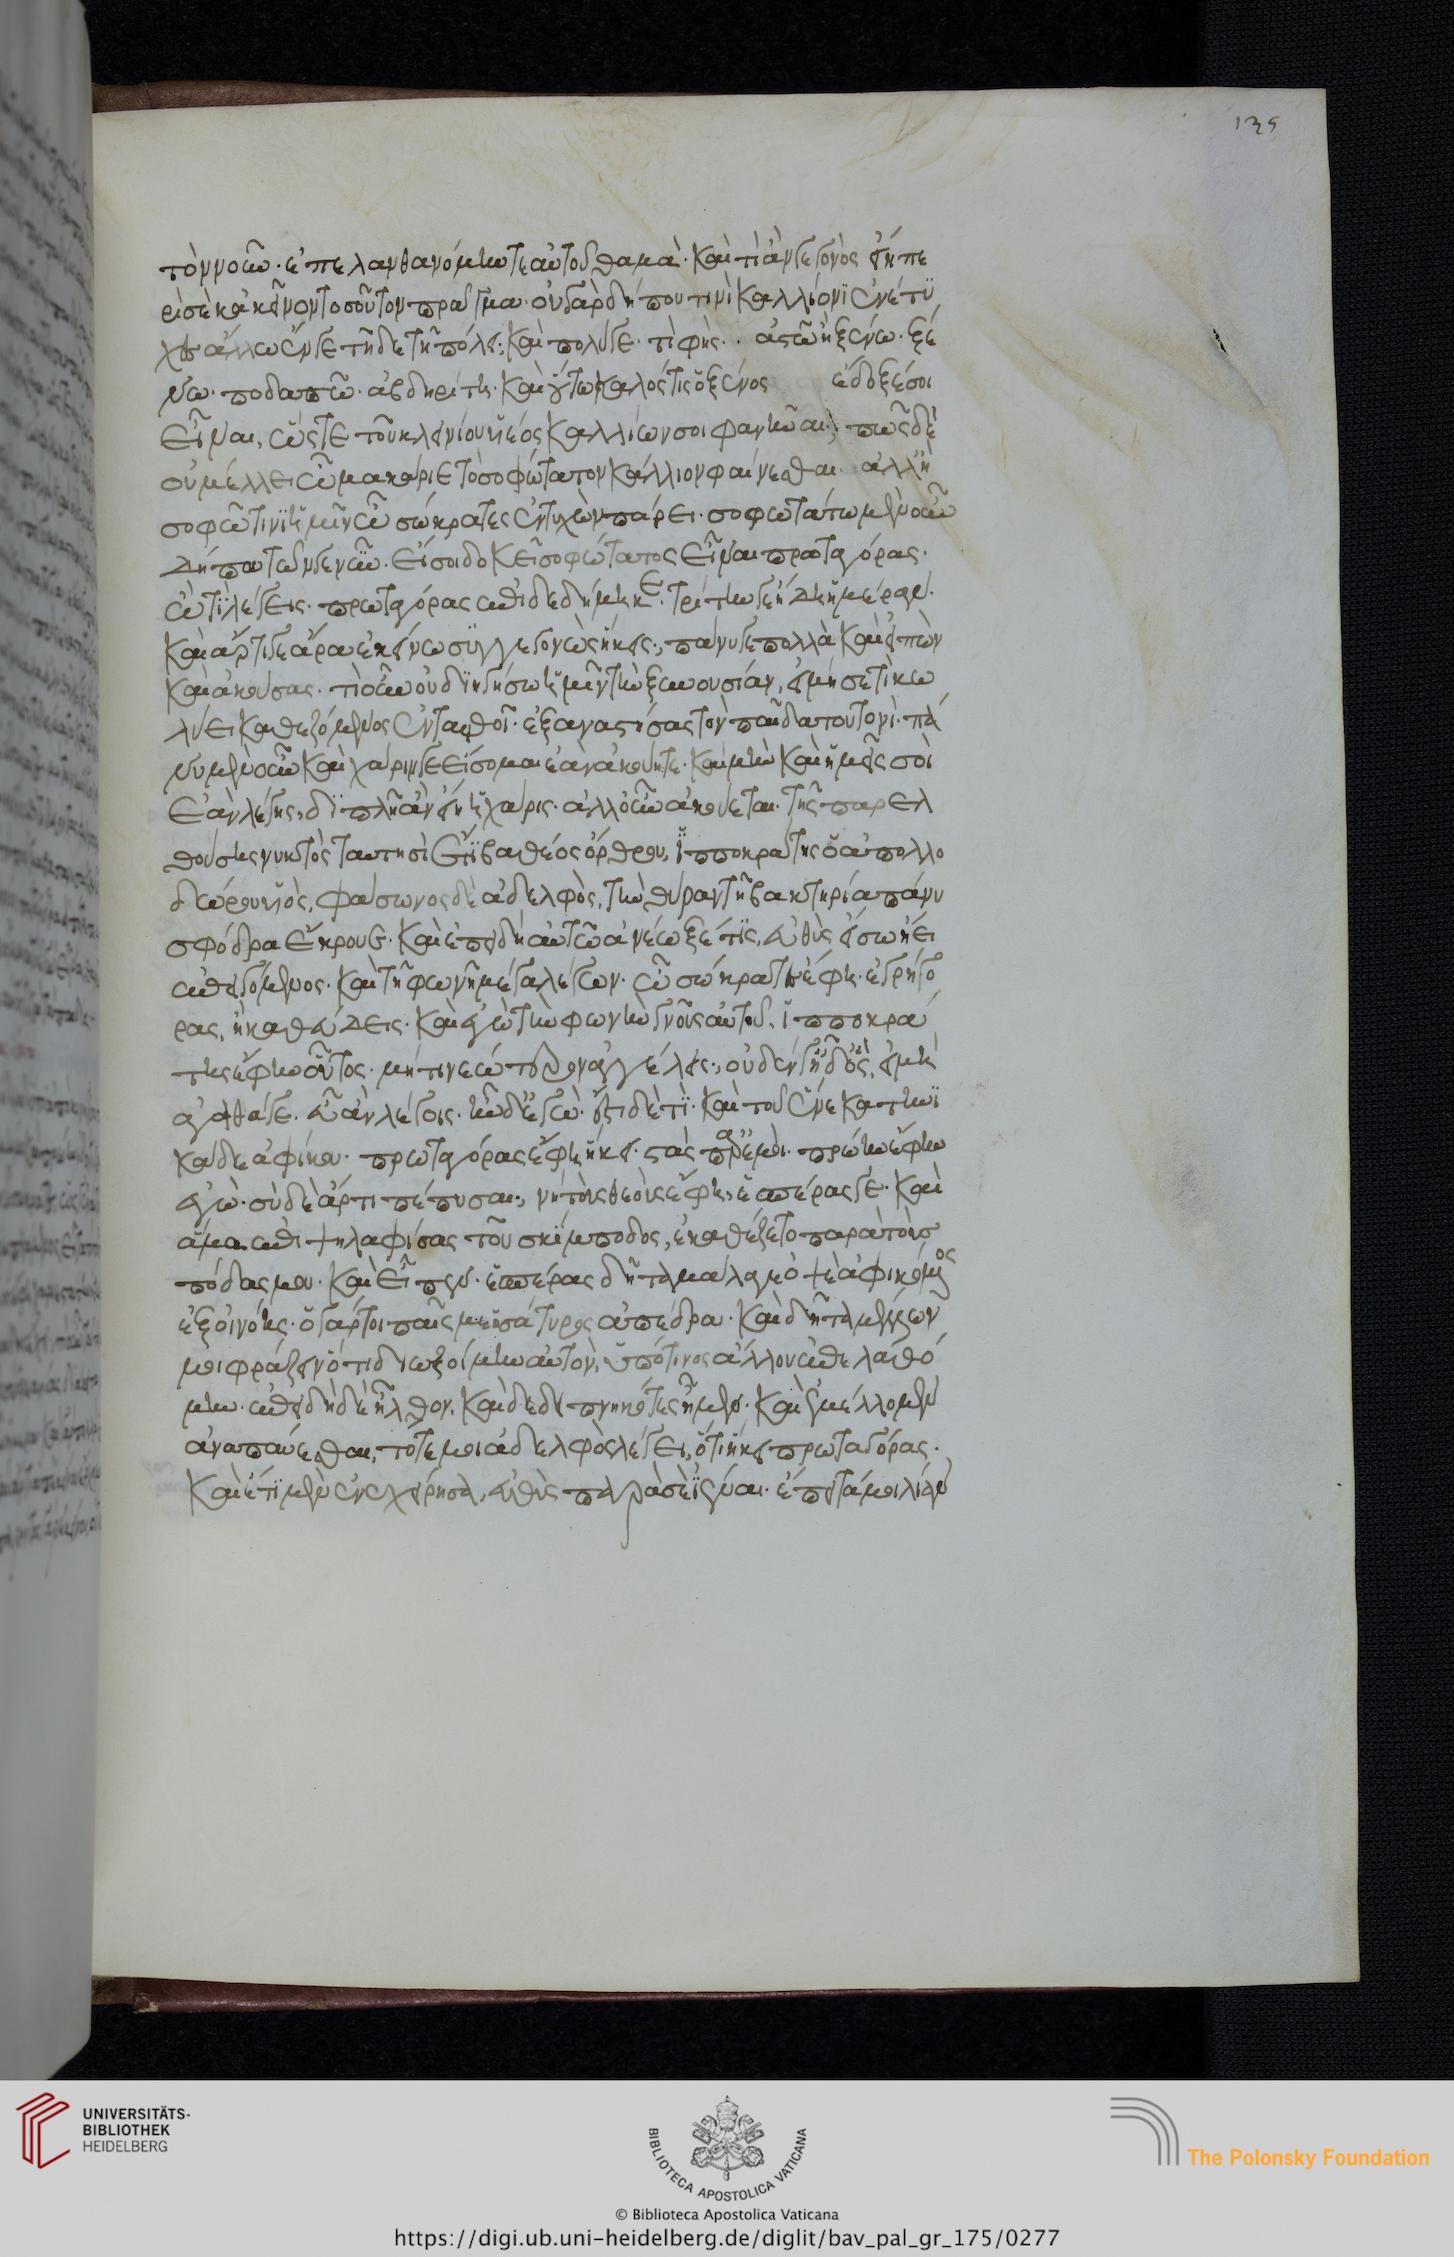 135
τὸν νοῦν· ἐπελανθανόμην τε αὐτοῦ θαμά· καὶ τί ἂν γεγονὸς εἴη πε
ρὶ σὲ κἀκεῖνον τοσοῦτον πρᾶγμα· οὐ γὰρ δήπου τινὶ καλλίονι ἐνέτυ
χες ἄλλω ἔν γε τῆδε τῆ πόλει; καὶ πολύ γε· τί φής· ἀστῶ ἢ ξένω· ξέ
νω· ποδαπῶ· ἀβδηρίτη· καὶ οὕτω καλός τις ὁ ξένος ἔδοξέ σοι
εἶναι, ὥστε τοῦ κλεινίου υἱέος καλλίων σοι φανῆναι; πῶς δὲ
οὐ μέλλει ὦ μακάριε τὸ σοφώτατον κάλλιον φαίνεσθαι· ἀλλ' ἦ
σοφῶ τινι ἡμῖν ὦ σώκρατες ἐντυχὼν πάρει· σοφωτάτω μὲν οὖν
δήπου τῶν γε νῦν· εἴ σοι δοκεῖ σοφώτατος εἶναι πρωταγόρας·
ὢ τί λέγεις· πρωταγόρας ἐπιδεδήμηκε· τρίτην γε ἤδη ἡμέραν·
καὶ ἄρτι γε ἄρα ἐκείνω συγγεγονὼς ἥκεις; πάνυ γε πολλὰ καὶ εἰπὼν
καὶ ἀκούσας· τί οὖν οὐ διηγήσω ἡμῖν τὴν ξυνουσίαν, εἰ μή σέ τι κω
λύει καθεζόμενος ἐνταυθοῖ· ἐξαναστήσας τὸν παῖδα τουτονί· πά
νυ μὲν οὖν καὶ χάριν γε εἴσομαι ἐὰν ἀκούητε· καὶ μὴν καὶ ἡμεῖς σοὶ
ἐὰν λέγης· διπλῆ ἂν εἴη ἡ χάρις· ἀλλ' οὖν ἀκούεται· τῆς παρελ
θούσης νυκτὸς ταυτησὶ ἔτι βαθέος ὄρθρου, ἱπποκράτης ὁ ἀπολλο
δώρου υἱὸς, φάσωνος δὲ ἀδελφὸς, τὴν θύραν τῆ βακτηρία πάνυ
σφόδρα ἔκρουε· καὶ ἐπειδὴ αὐτῶ ἀνέωξέ τις, εὐθὺς εἴσω ἤει
ἐπειγόμενος· καὶ τῆ φωνῆ μέγα λέγων· ὦ σώκρατες ἔφη· ἐγρήγο
ρας, ἢ καθεύδεις· καὶ ἐγὼ τὴν φωνὴν γνοὺς αὐτοῦ, ἱπποκρά
της ἔφην οὗτος· μή τι νεώτερον ἀγγέλεις; οὐδέν γ' ἦ δ' ὅς, εἰ μὴ
ἀγαθά γε· εὖ ἂν λέγοις· ἦν δ' ἐγώ· ἔστι δὲ τί· καὶ τοῦ ἕνεκα τηνι
κάδε ἀφίκου· πρωταγόρας ἔφη ἥκει· στὰς παρ' ἐμοί· πρώην ἔφην
ἐγὼ· σὺ δὲ ἄρτι πέπυσαι; νὴ τοὺς θεοὺς ἔφη, ἑσπέρας γε· καὶ
ἅμα ἐπιψηλαφίσας τοῦ σκίμποδος, ἐκαθέζετο παρὰ τοὺς
πόδας μου· καὶ εἶπεν· ἑσπέρας δῆτα μάλα γε ὀψὲ ἀφικόμενος
ἐξ οἰνόης· ὁ γάρ τοι παῖς με ὁ σάτυρος ἀπέδρα· καὶ δῆτα μέλλων
μοι φράζειν ὅτι διωξοίμην αὐτὸν, ὑπό τινος ἄλλου ἐπελαθό
μην· ἐπειδὴ δὲ ἦλθον, καὶ δεδειπνηκότες ἦμεν· καὶ ἐμέλλομεν
ἀναπαύεσθαι, τότε μοι ἀδελφὸς λέγει, ὅτι ἥκει πρωταγόρας·
καὶ ἔτι μὲν ἐνεχείρησα, εὐθὺς παρὰ σὲ ἰέναι· ἔπειτά μοι λίαν
UNIVERSITÄTS-
BIBLIOTHEK
HEIDELBERG
BIBLIOTECA APOSTOLICA VATICANA
The Polonsky Foundation
© Biblioteca Apostolica Vaticana
https://digi.ub.uni-heidelberg.de/diglit/bav_pal_gr_175/0277